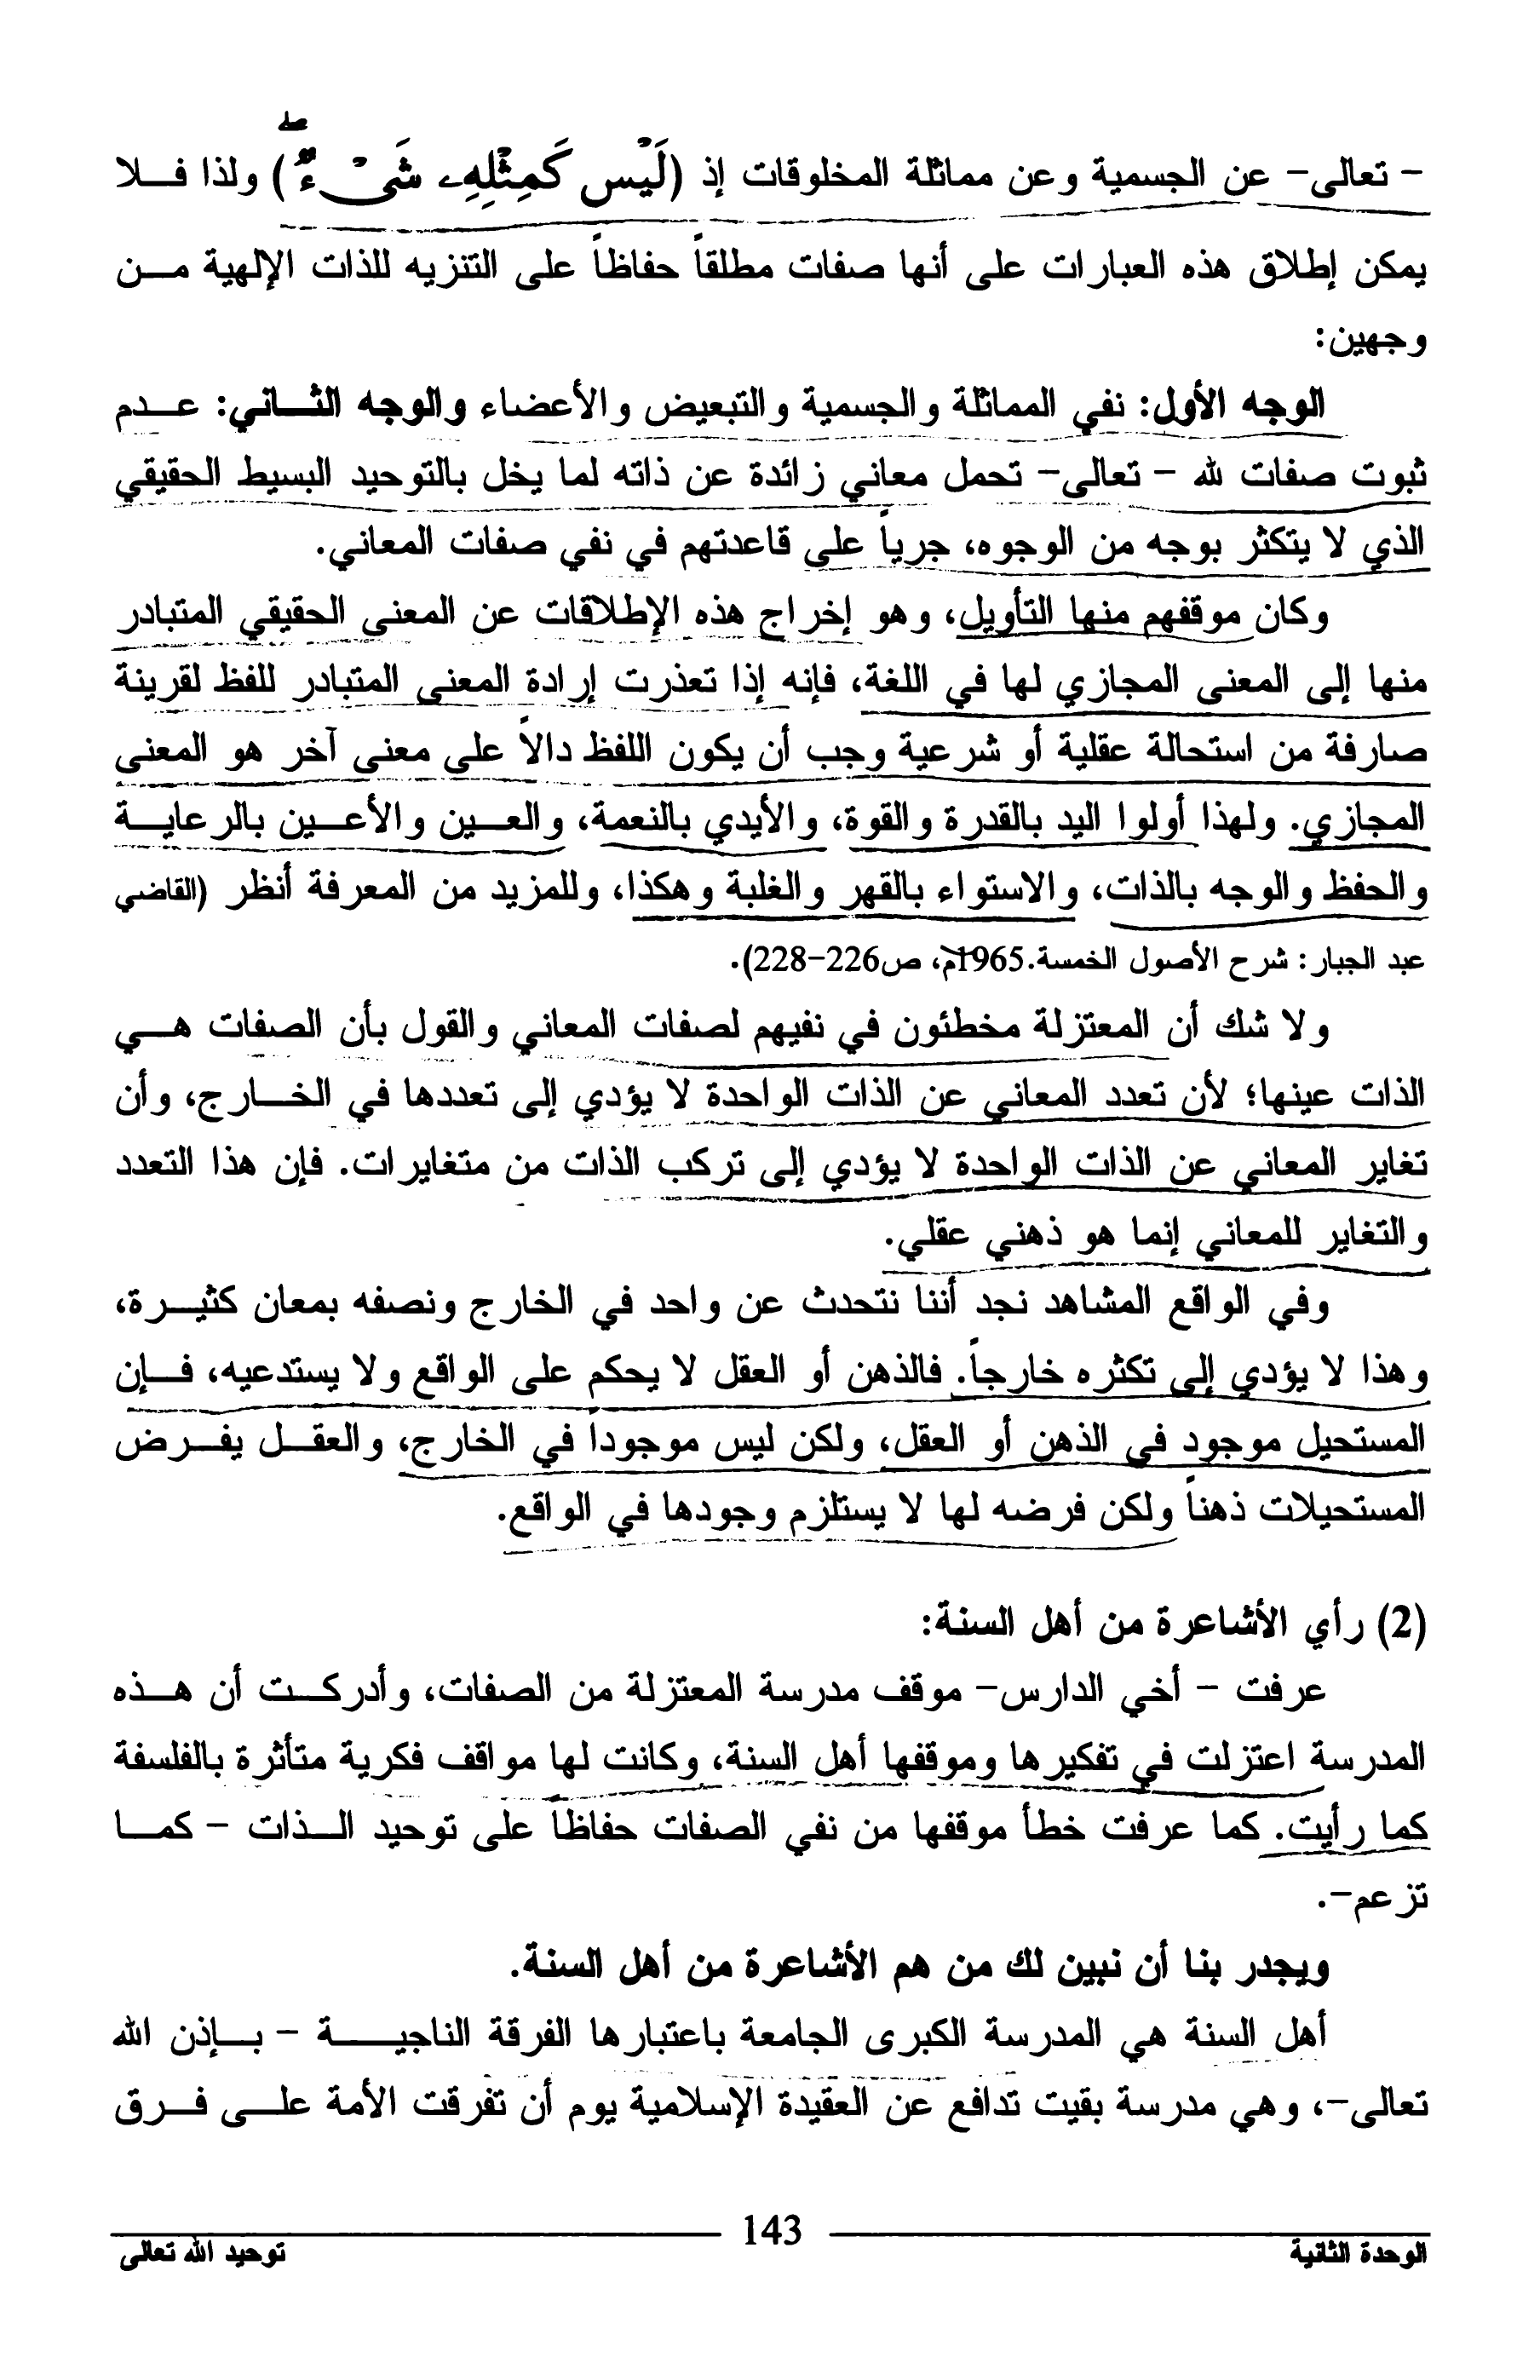 - تعالى- عن الجسمية وعن مماثلة المخلوقات إذ (لَيْسَ كَمِثْلِهِۦ شَىْءٌۖ) ولذا فلا
يمكن إطلاق هذه العبارات على أنها صفات مطلقاً حفاظاً على التنزيه للذات الإلهية من
وجهين:
الوجه الأول: نفي المماثلة والجسمية والتبعيض والأعضاء والوجه الثاني: عدم
ثبوت صفات لله - تعالى- تحمل معاني زائدة عن ذاته لما يخل بالتوحيد البسيط الحقيقي
الذي لا يتكثر بوجه من الوجوه، جرياً على قاعدتهم في نفي صفات المعاني.
وكان موقفهم منها التأويل، وهو إخراج هذه الإطلاقات عن المعنى الحقيقي المتبادر
منها إلى المعنى المجازي لها في اللغة، فإنه إذا تعذرت إرادة المعنى المتبادر للفظ لقرينة
صارفة من استحالة عقلية أو شرعية وجب أن يكون اللفظ دالاً على معنى آخر هو المعنى
المجازي. ولهذا أولوا اليد بالقدرة والقوة، والأيدي بالنعمة، والعين والأعين بالرعاية
والحفظ والوجه بالذات، والاستواء بالقهر والغلبة وهكذا، وللمزيد من المعرفة أنظر (القاضي
عبد الجبار: شرح الأصول الخمسة.1965م، ص226-228).
ولا شك أن المعتزلة مخطئون في نفيهم لصفات المعاني والقول بأن الصفات هي
الذات عينها؛ لأن تعدد المعاني عن الذات الواحدة لا يؤدي إلى تعددها في الخارج، وأن
تغاير المعاني عن الذات الواحدة لا يؤدي إلى تركب الذات من متغايرات. فإن هذا التعدد
والتغاير للمعاني إنما هو ذهني عقلي.
وفي الواقع المشاهد نجد أننا نتحدث عن واحد في الخارج ونصفه بمعان كثيرة،
وهذا لا يؤدي إلى تكثره خارجاً. فالذهن أو العقل لا يحكم على الواقع ولا يستدعيه، فإن
المستحيل موجود في الذهن أو العقل، ولكن ليس موجوداً في الخارج، والعقل يفرض
المستحيلات ذهناً ولكن فرضه لها لا يستلزم وجودها في الواقع.
(2) رأي الأشاعرة من أهل السنة:
عرفت - أخي الدارس- موقف مدرسة المعتزلة من الصفات، وأدركت أن هذه
المدرسة اعتزلت في تفكيرها وموقفها أهل السنة، وكانت لها مواقف فكرية متأثرة بالفلسفة
كما رأيت. كما عرفت خطأ موقفها من نفي الصفات حفاظاً على توحيد الذات - كما
تزعم-.
ويجدر بنا أن نبين لك من هم الأشاعرة من أهل السنة.
أهل السنة هي المدرسة الكبرى الجامعة باعتبارها الفرقة الناجية - بإذن الله
تعالى-، وهي مدرسة بقيت تدافع عن العقيدة الإسلامية يوم أن تفرقت الأمة على فرق
143
الوحدة الثانية
توحيد الله تعالى